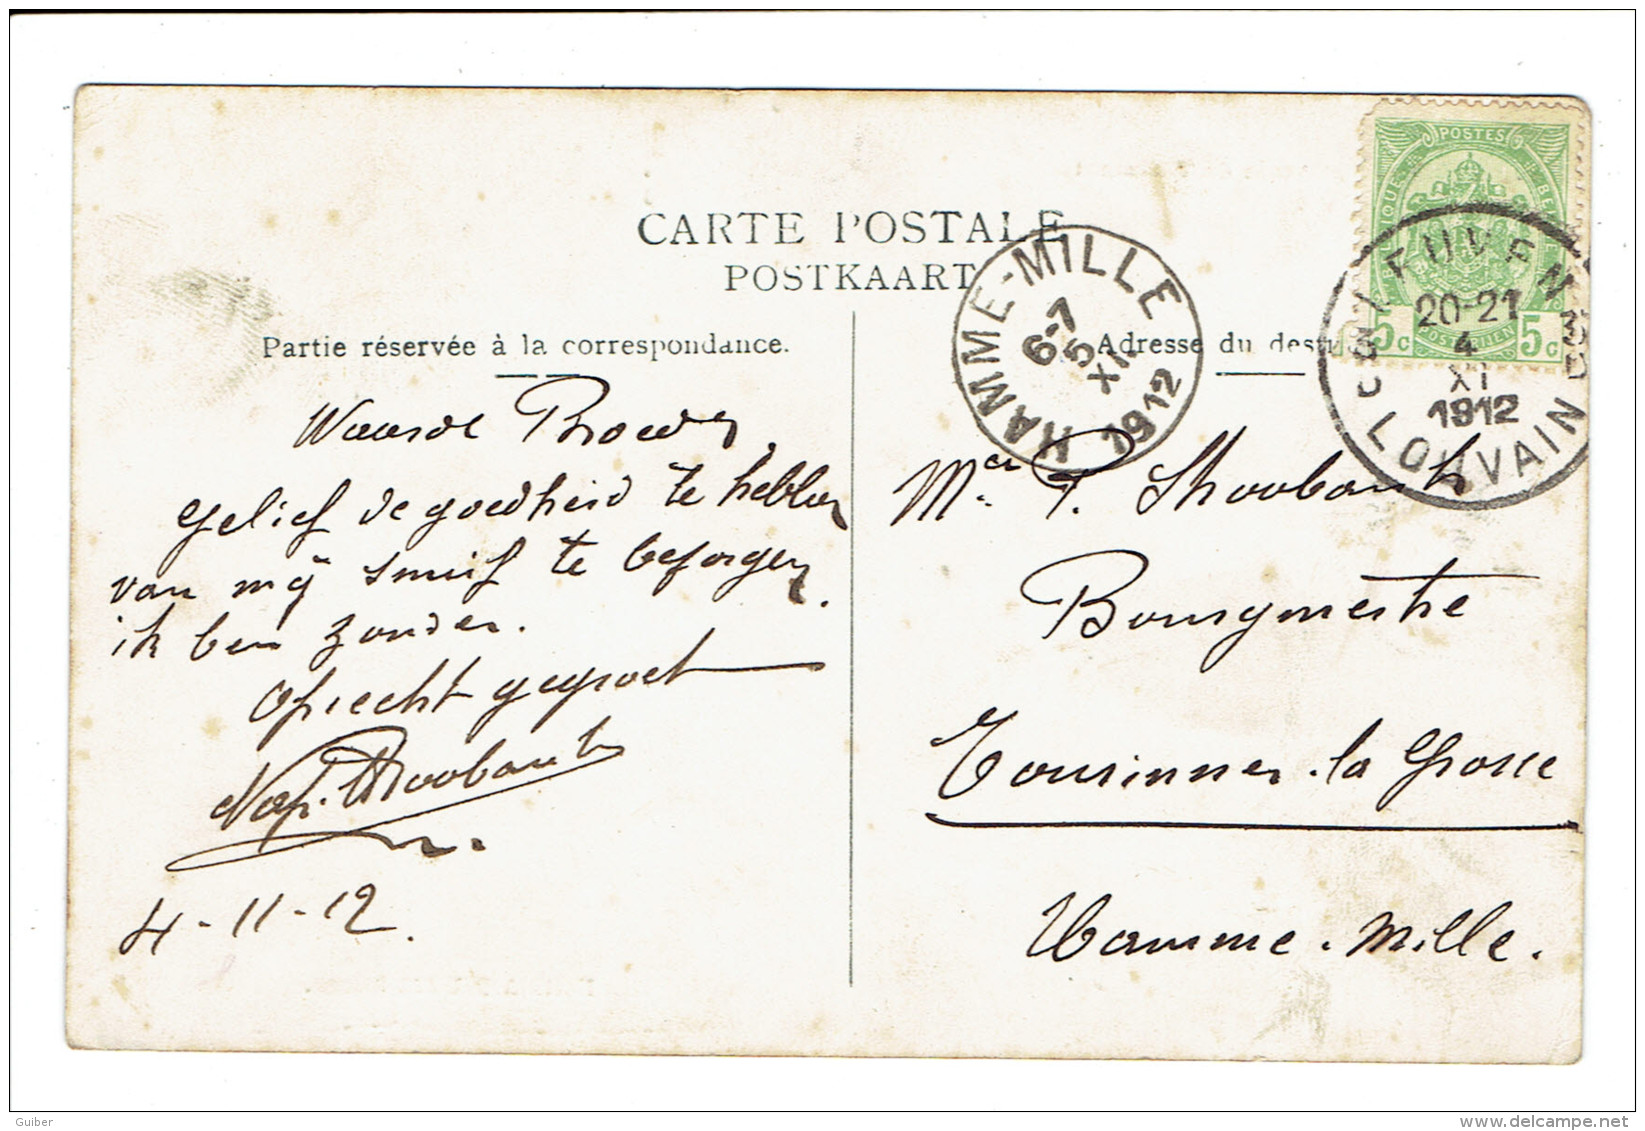 CARTE POSTALE
POSTKAART
Partie réservée à la correspondance.
Adresse du destu
Waarde Broeder,
gelief de goedheid te hebben
van mij snuif te besorgen,
ik ben zonder.
Oprecht gegroet
Nap. Stroobants
4-11-12.
POSTES
POSTERIJEN
5c 5c
LEUVEN
20-21
4
XI
1912
LOUVAIN
HAMME-MILLE
6-7
5
XI
1912
Mr P. Stroobants
Bourgmestre
Tourinnes-la Grosse
Hamme-Mille.
Guiber
delcampe.net